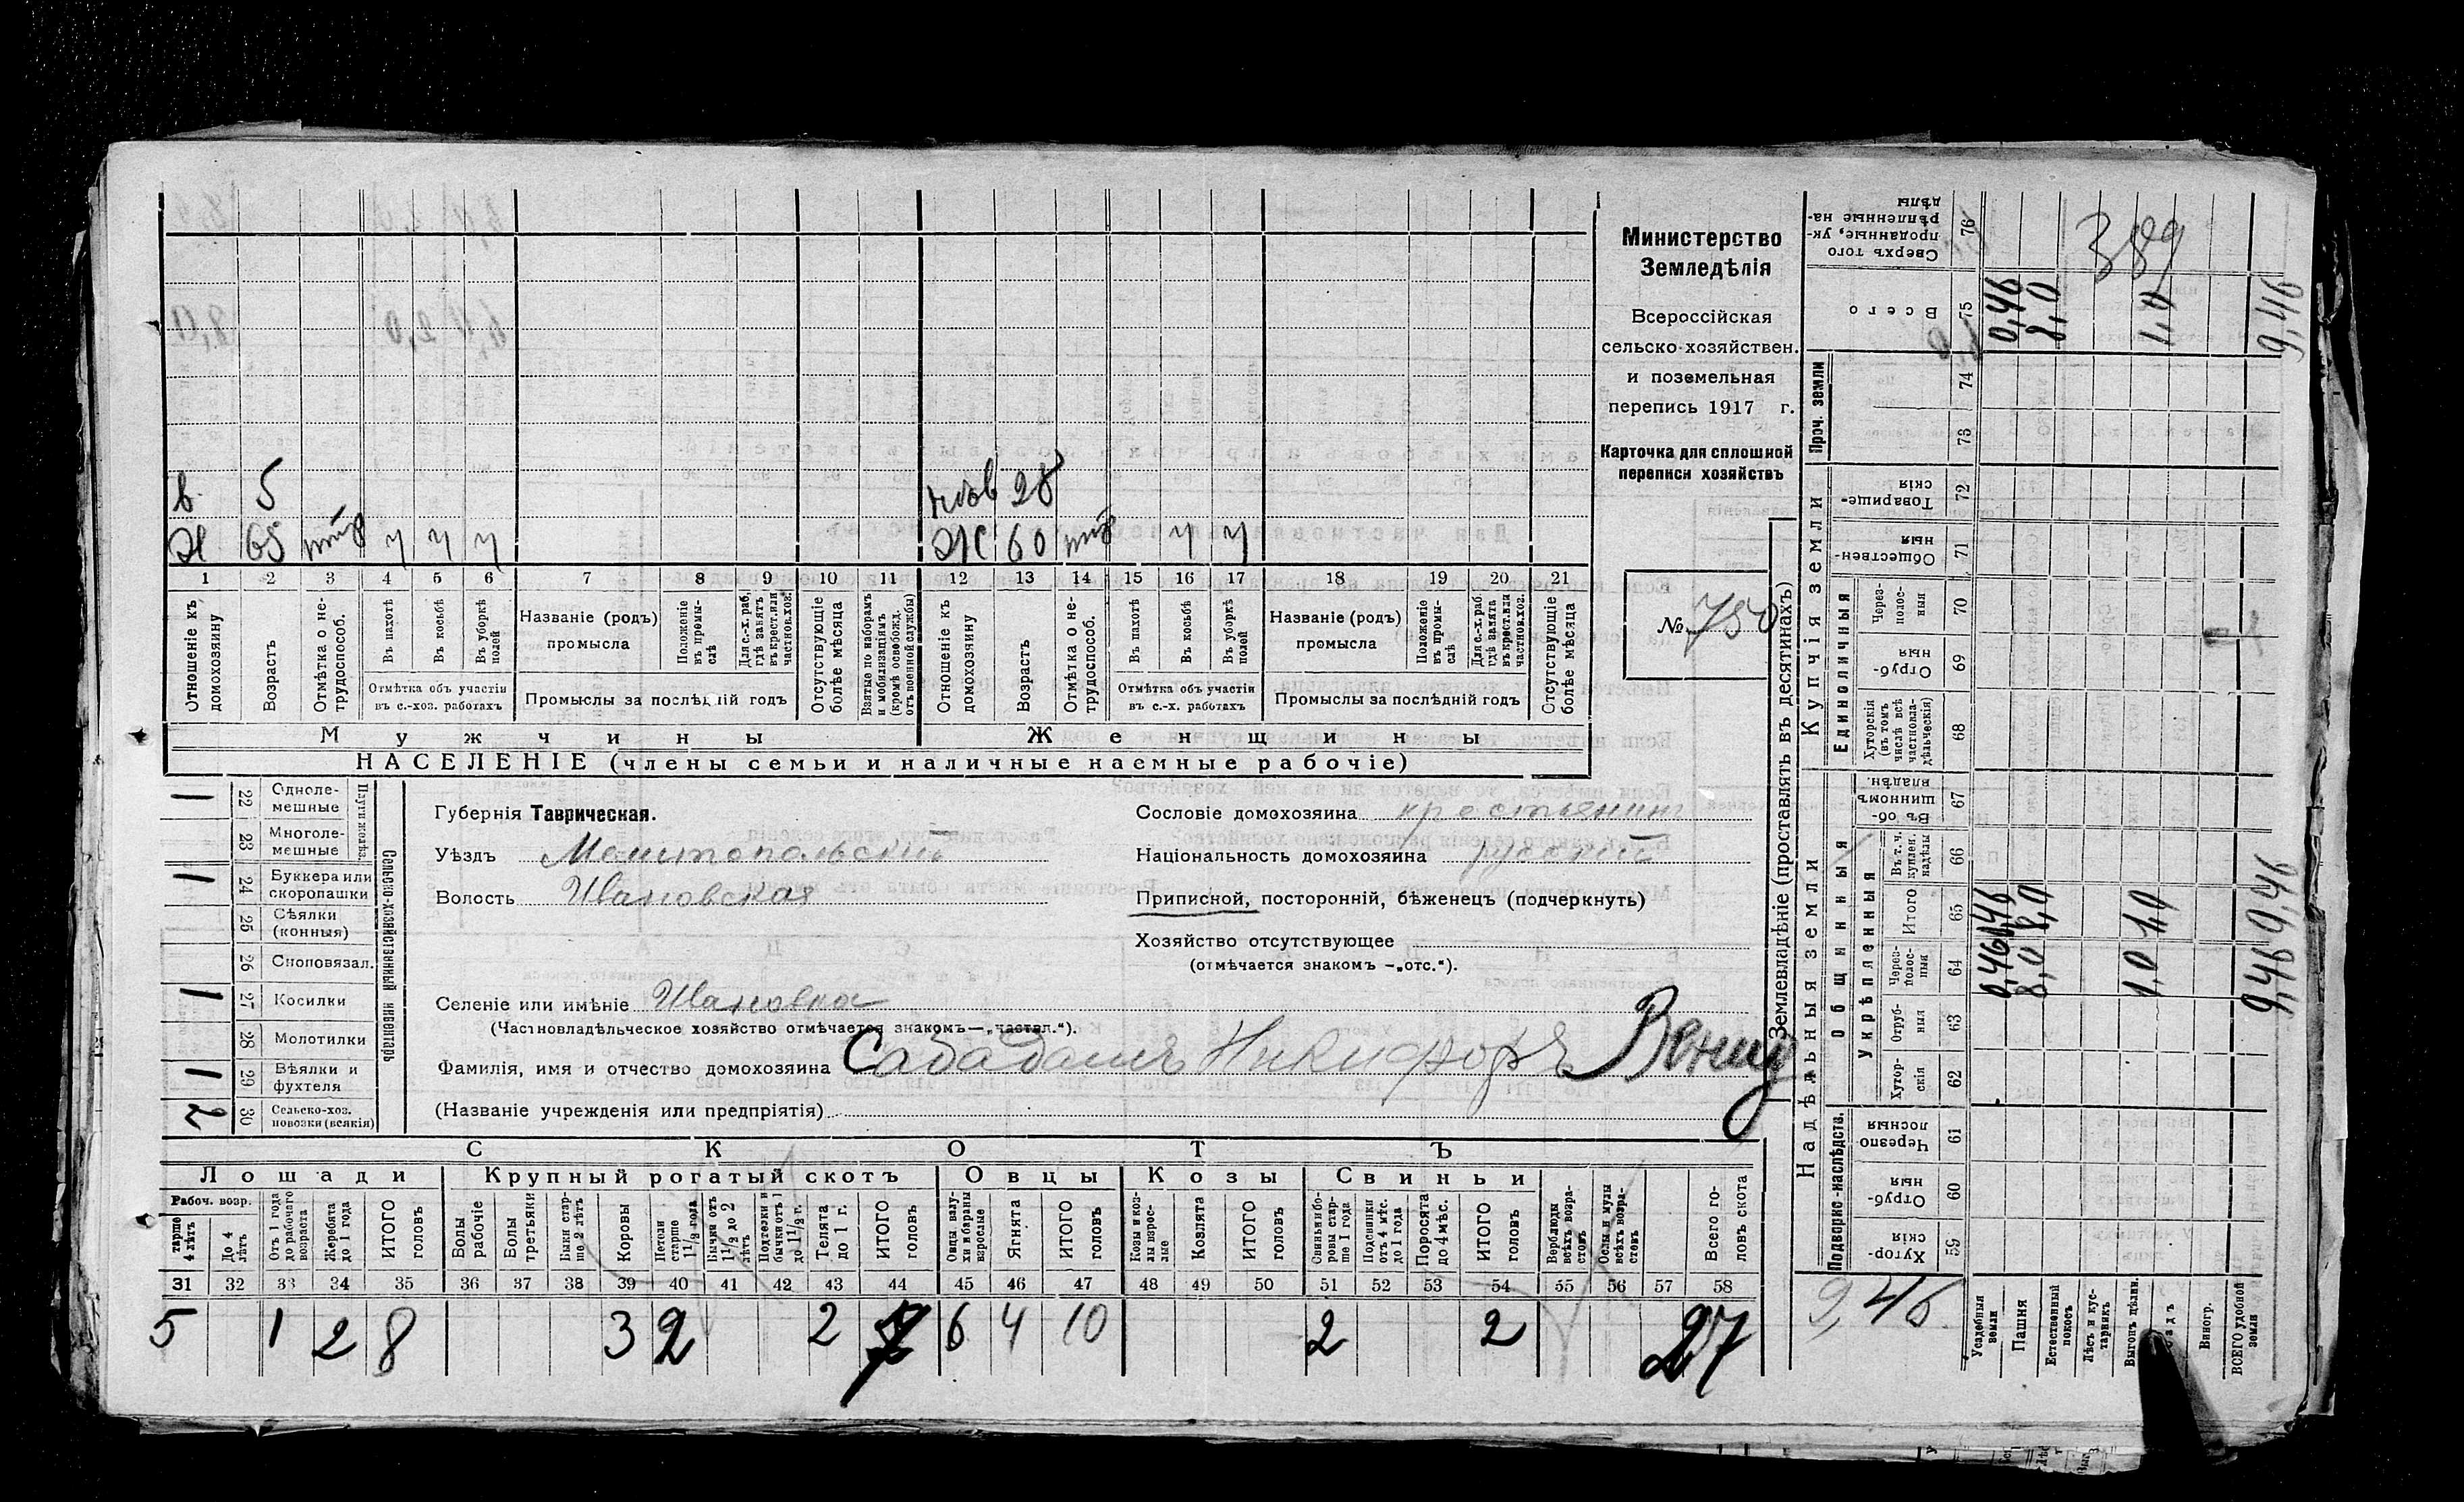 Министерство
Земледѣлія
Всероссійская
сельско-хозяйствен.
и поземельная
перепись 1917 г.
Карточка для сплошной
переписи хозяйствъ
№ 750
в. 5
28
Х 65
Ж 60
1 2 3 4 5 6 7 8 9 10 11 12 13 14 15 16 17 18 19 20 21
Отношеніе къ домохозяину
Возрастъ
Отмѣтка о не-трудоспособ.
Въ пахотѣ
Въ косьбѣ
Въ уборкѣ полей
Отмѣтка объ участіи въ с.-хоз. работахъ
Названіе (родъ) промысла
Положеніе въ промы-слѣ
Для с.-х. раб. гдѣ занятъ въ крест. или частновл. хоз.
Промыслы за послѣдній годъ
Отсутствующіе болѣе мѣсяца
Взятые по наборамъ и мобилизаціямъ (кромѣ освобожд. отъ военной службы)
Отношеніе къ домохозяину
Возрастъ
Отмѣтка о не-трудоспособ.
Въ пахотѣ
Въ косьбѣ
Въ уборкѣ полей
Отмѣтка объ участіи въ с.-х. работахъ
Названіе (родъ) промысла
Положеніе въ промы-слѣ
Для с.-х. раб. гдѣ занята въ крест. или частновл. хоз.
Промыслы за послѣдній годъ
Отсутствующіе болѣе мѣсяца
Мужчины Женщины
НАСЕЛЕНІЕ (члены семьи и наличные наемные рабочіе)
Сельско-хозяйственный инвентарь
Плуги желѣз.
1 22 Одноле-мешные
23 Многоле-мешные
1 24 Буккера или скоропашки
25 Сѣялки (конныя)
26 Сноповязал.
1 27 Косилки
28 Молотилки
1 29 Вѣялки и фухтеля
2 30 Сельско-хоз. повозки (всякія)
Губернія Таврическая.
Уѣздъ Мелитопольскій
Волость Ивановская
Сословіе домохозяина крестьянинъ
Національность домохозяина русскій
Приписной, посторонній, бѣженецъ (подчеркнуть)
Хозяйство отсутствующее
(отмѣчается знакомъ -„отс.“).
Селеніе или имѣніе Ивановка
(Частновладѣльческое хозяйство отмѣчается знакомъ—„частвл.“).
Фамилія, имя и отчество домохозяина Сабадашъ Никифоръ
(Названіе учрежденія или предпріятія)
СКОТЪ
Лошади Крупный рогатый скотъ Овцы Козы Свиньи
Рабоч. возр.
старше 4 лѣтъ
До 4 лѣтъ
Отъ 1 года до рабочаго возраста
Жеребята до 1 года
ИТОГО головъ
Волы рабочіе
Волы третьяки
Быки стар-ше 2 лѣтъ
Коровы
Нетели старше 1½ года
Бычки отъ 1½ до 2 лѣтъ
Подтелки и бычки отъ 1 до 1½ г.
Телята до 1 г.
ИТОГО головъ
Овцы валу-хи и бараны взрослые
Ягнята
ИТОГО головъ
Козы и коз-лы взрос-лые
Козлята
ИТОГО головъ
Свиньи и бо-ровы стар-ше 1 года
Подсвинки отъ 4 мѣс. до 1 года
Поросята до 4 мѣс.
ИТОГО головъ
Верблюды всѣхъ возра-стовъ
Ослы и мулы всѣхъ возра-стовъ
Всего го-ловъ скота
31 32 33 34 35 36 37 38 39 40 41 42 43 44 45 46 47 48 49 50 51 52 53 54 55 56 57 58
5 1 2 8 3 2 2 7 6 4 10 2 2 27
Землевладѣніе (проставлять въ десятинахъ)
Надѣльныя земли Купчія земли
Подворно-наслѣдств.
Общинныя
укрѣпленныя
Единоличныя
Проч. земли
Хутор-скія 59
Отруб-ныя 60
Черезпо лосныя 61
Хутор-скія 62
Отруб-ныя 63
Через-полос-ныя 64
Итого 65
Въ т. ч. куплен. надѣлы 66
Въ об-щинномъ владѣн. 67
Хуторскія (въ томъ числѣ всѣ частновла-дѣльческія) 68
Отруб-ныя 69
Через-полос-ныя 70
Обществен-ныя 71
Товарище-скія 72
73
74
Всего 75
Сверхъ того проданные, ук-рѣпленные на-дѣлы 76
Усадебныя земли 0,46 0,46 0,46
Пашня 8,0 8,0 8,0
Естественный покосъ
Лѣсъ и кус-тарникъ
Выгонъ дѣлин. 1,0 1,0 1,0
Виногр.
ВСЕГО удобной земли 9,46 9,46 9,46
389
9,46